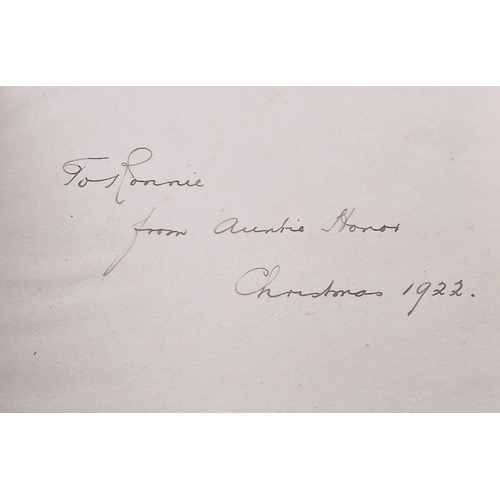 To Ronnie
from Auntie Honor
Christmas 1922.